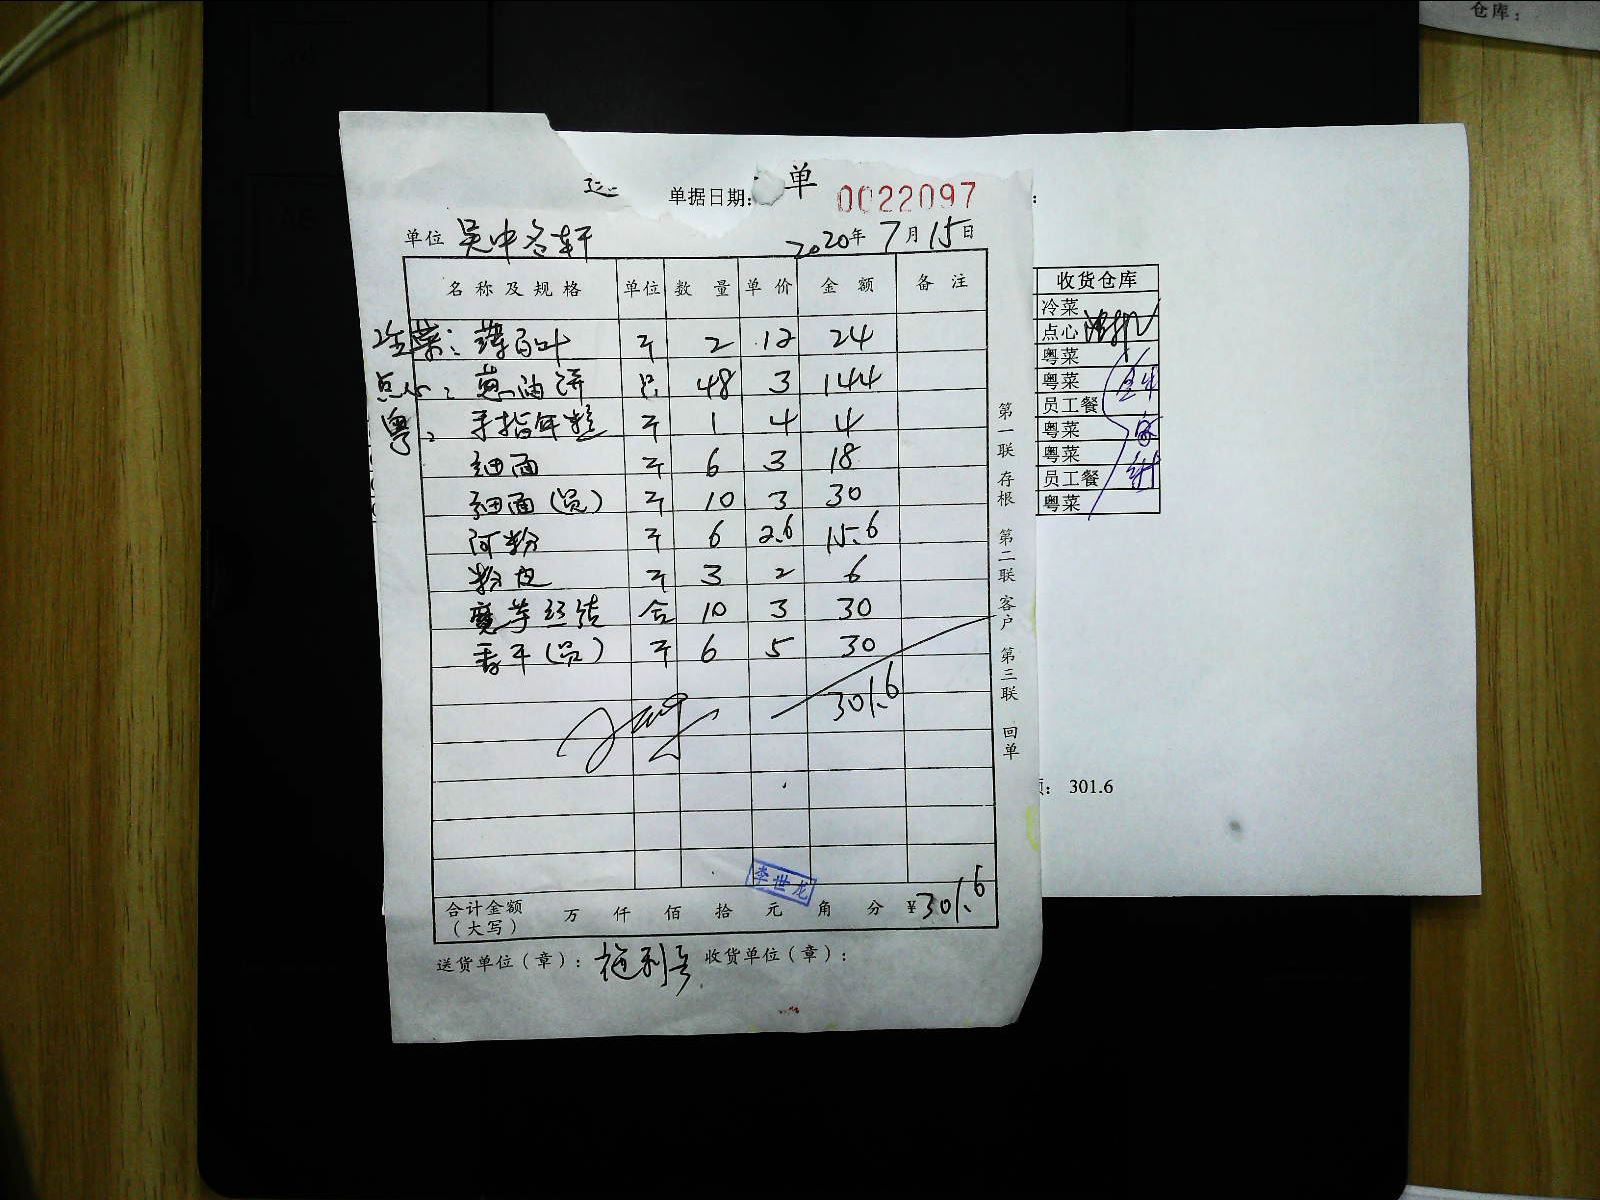 仓库：
单据日期： 单 0022097
单位 吴中 轩 2020年7月15日
名称及规格 单位 数量 单价 金额 备注 收货仓库
冷菜：薄百叶 斤 2 12 24 冷菜
点心： 葱油饼 只 48 3 144 点心
粤： 手指年糕 斤 1 4 4 粤菜
细面 斤 6 3 18 粤菜
细面（员） 斤 10 3 30 员工餐
河粉 斤 6 2.6 15.6 粤菜
粉皮 斤 3 2 6 粤菜
魔芋丝结 合 10 3 30 员工餐
香干（员） 斤 6 5 30 粤菜
301.6
第一联 存根 第二联 客户 第三联 回单
： 301.6
李世龙
合计金额（大写） 万 仟 佰 拾 元 角 分 ¥301.6
送货单位（章）： 收货单位（章）：